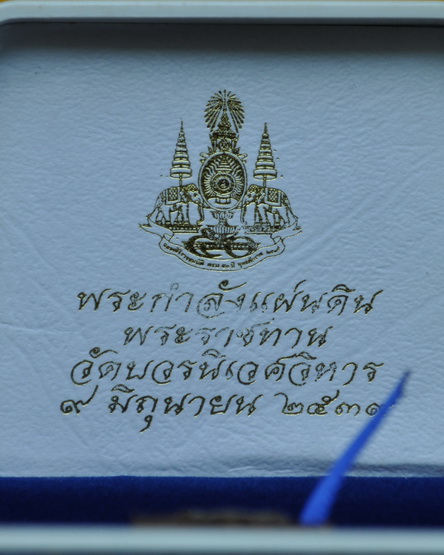 พระกำลังแผ่นดิน
พระราชทาน
วัดบวรนิเวศวิหาร
๙ มิถุนายน ๒๕๓๙